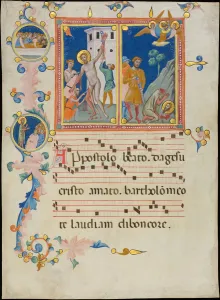 Apostolo beato dagesu
cristo amato. bartholomeo
te laudiam diboncore.